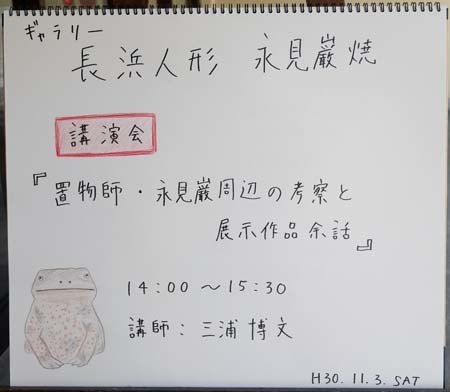 ギャラリー
長浜人形 永見巌焼
講演会
『置物師・永見巌周辺の考察と
展示作品余話』
14:00～15:30
講師：三浦博文
H30.11.3.SAT